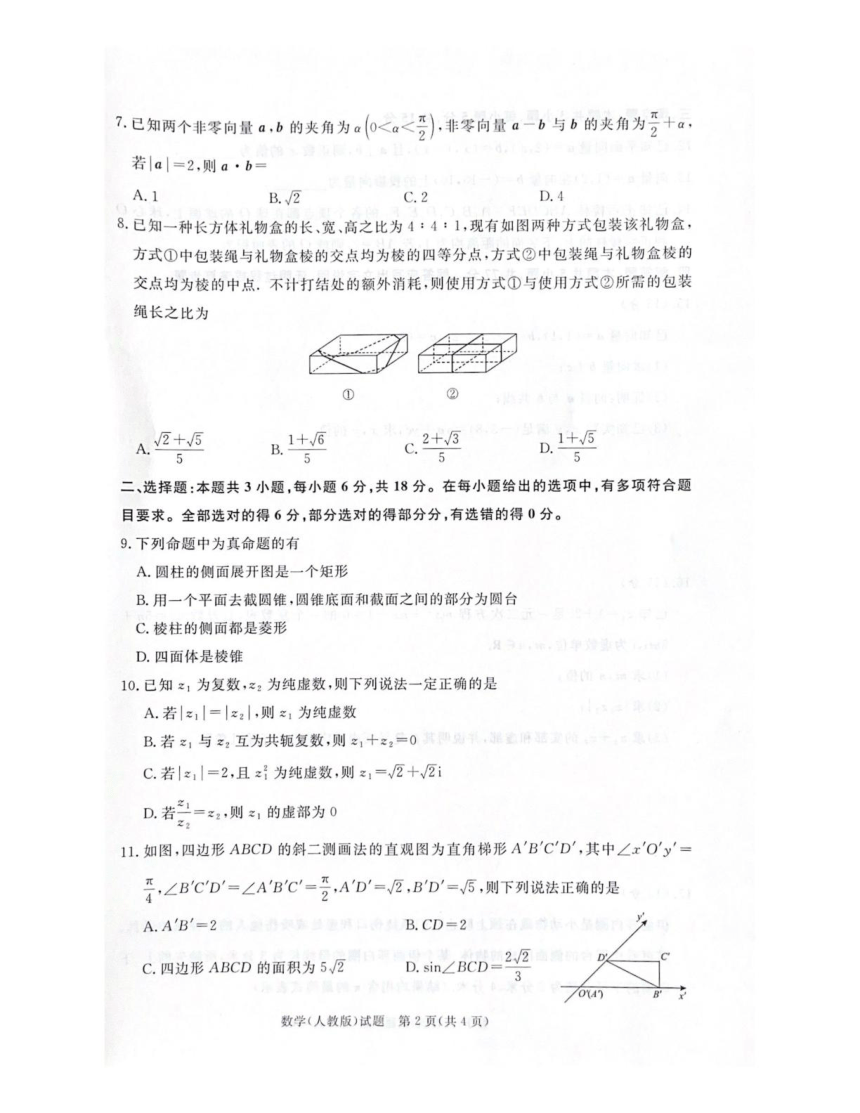 7.已知两个非零向量 a,b 的夹角为 α(0<α<π/2),非零向量 a-b 与 b 的夹角为π/2+α,
若|a|=2,则 a·b=
A.1 B.√2 C.2 D.4
8.已知一种长方体礼物盒的长、宽、高之比为 4:4:1,现有如图两种方式包装该礼物盒,
方式①中包装绳与礼物盒棱的交点均为棱的四等分点,方式②中包装绳与礼物盒棱的
交点均为棱的中点. 不计打结处的额外消耗,则使用方式①与使用方式②所需的包装
绳长之比为
① ②
A.(√2+√5)/5 B.(1+√6)/5 C.(2+√3)/5 D.(1+√5)/5
二、选择题:本题共 3 小题,每小题 6 分,共 18 分。在每小题给出的选项中,有多项符合题
目要求。全部选对的得 6 分,部分选对的得部分分,有选错的得 0 分。
9.下列命题中为真命题的有
A.圆柱的侧面展开图是一个矩形
B.用一个平面去截圆锥,圆锥底面和截面之间的部分为圆台
C.棱柱的侧面都是菱形
D.四面体是棱锥
10.已知 z₁ 为复数,z₂ 为纯虚数,则下列说法一定正确的是
A.若|z₁|=|z₂|,则 z₁ 为纯虚数
B.若 z₁ 与 z₂ 互为共轭复数,则 z₁+z₂=0
C.若|z₁|=2,且 z₁² 为纯虚数,则 z₁=√2+√2i
D.若z₁/z₂=z₂,则 z₁ 的虚部为 0
11.如图,四边形 ABCD 的斜二测画法的直观图为直角梯形 A′B′C′D′,其中∠x′O′y′=
π/4,∠B′C′D′=∠A′B′C′=π/2,A′D′=√2,B′D′=√5,则下列说法正确的是
A.A′B′=2 B.CD=2
C.四边形 ABCD 的面积为 5√2 D.sin∠BCD=2√2/3
y′
D′ C′
O′(A′) B′ x′
数学(人教版)试题 第 2 页(共 4 页)